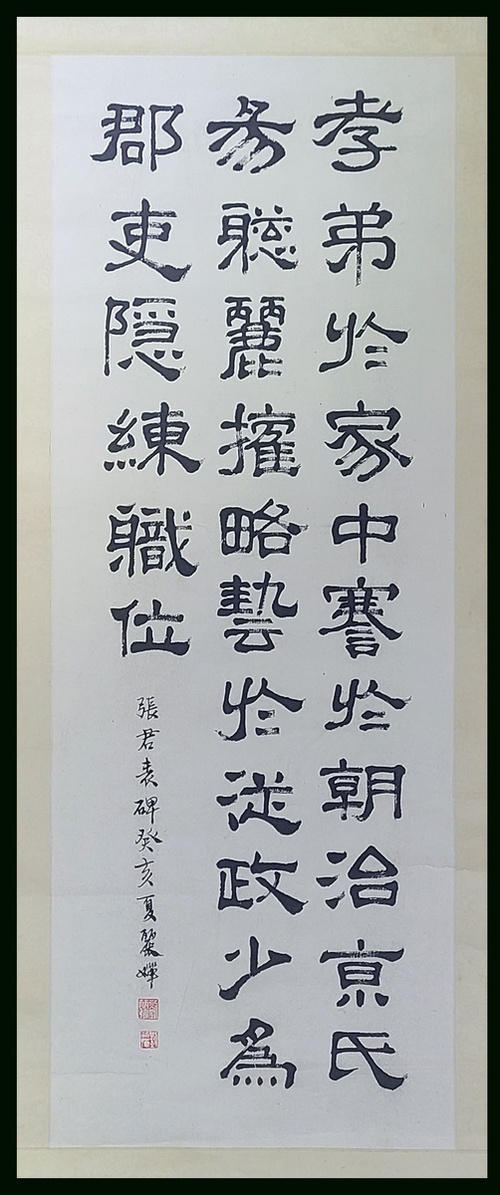 孝弟於家中謇於朝治京氏
易聰麗權略藝於從政少為
郡吏隱練職位
張君表碑癸亥夏嬋